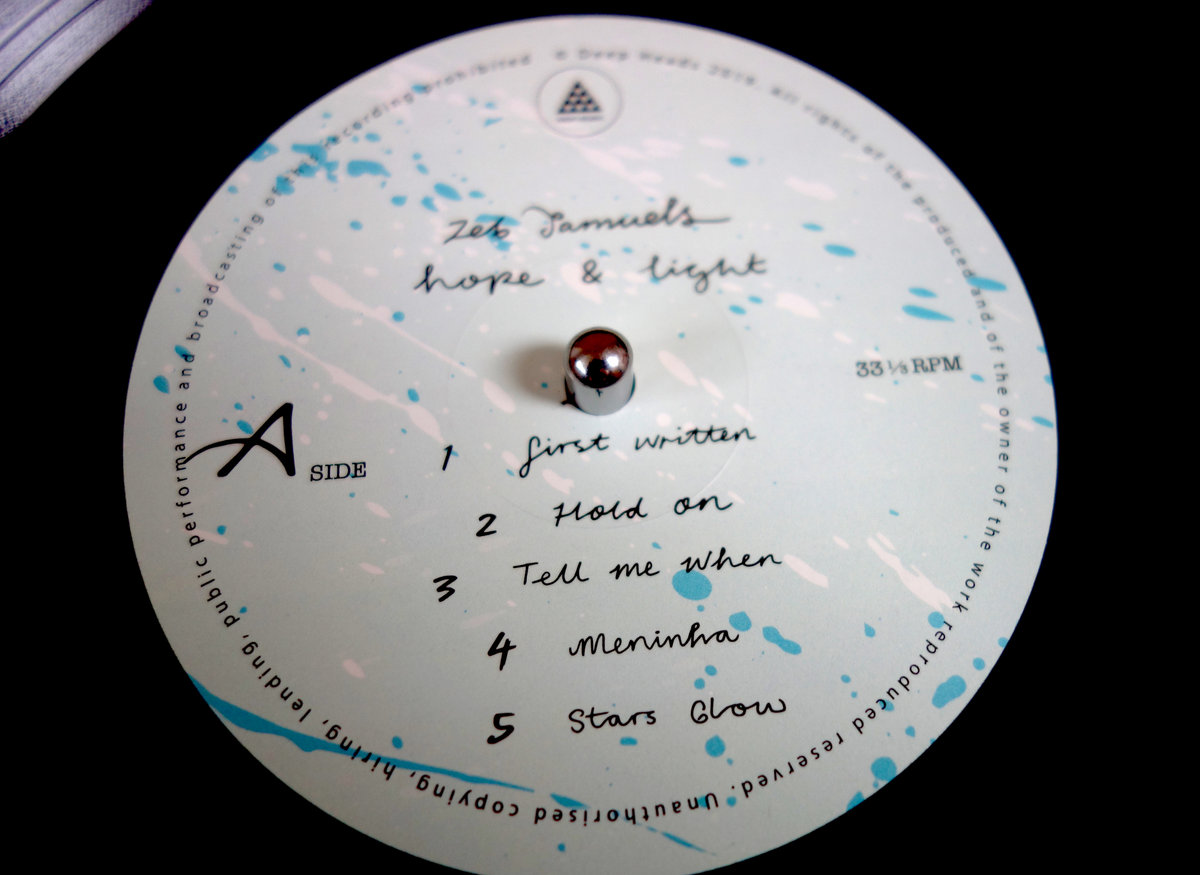 Zeb Samuels
hope & light
33 ⅓ RPM
A SIDE
1 first written
2 Hold on
3 Tell me When
4 Meninha
5 Stars Glow
℗ Deep Heads 2019. All rights of the produced and of the owner of the work reproduced reserved. Unauthorised copying, hiring, lending, public performance and broadcasting of this recording prohibited